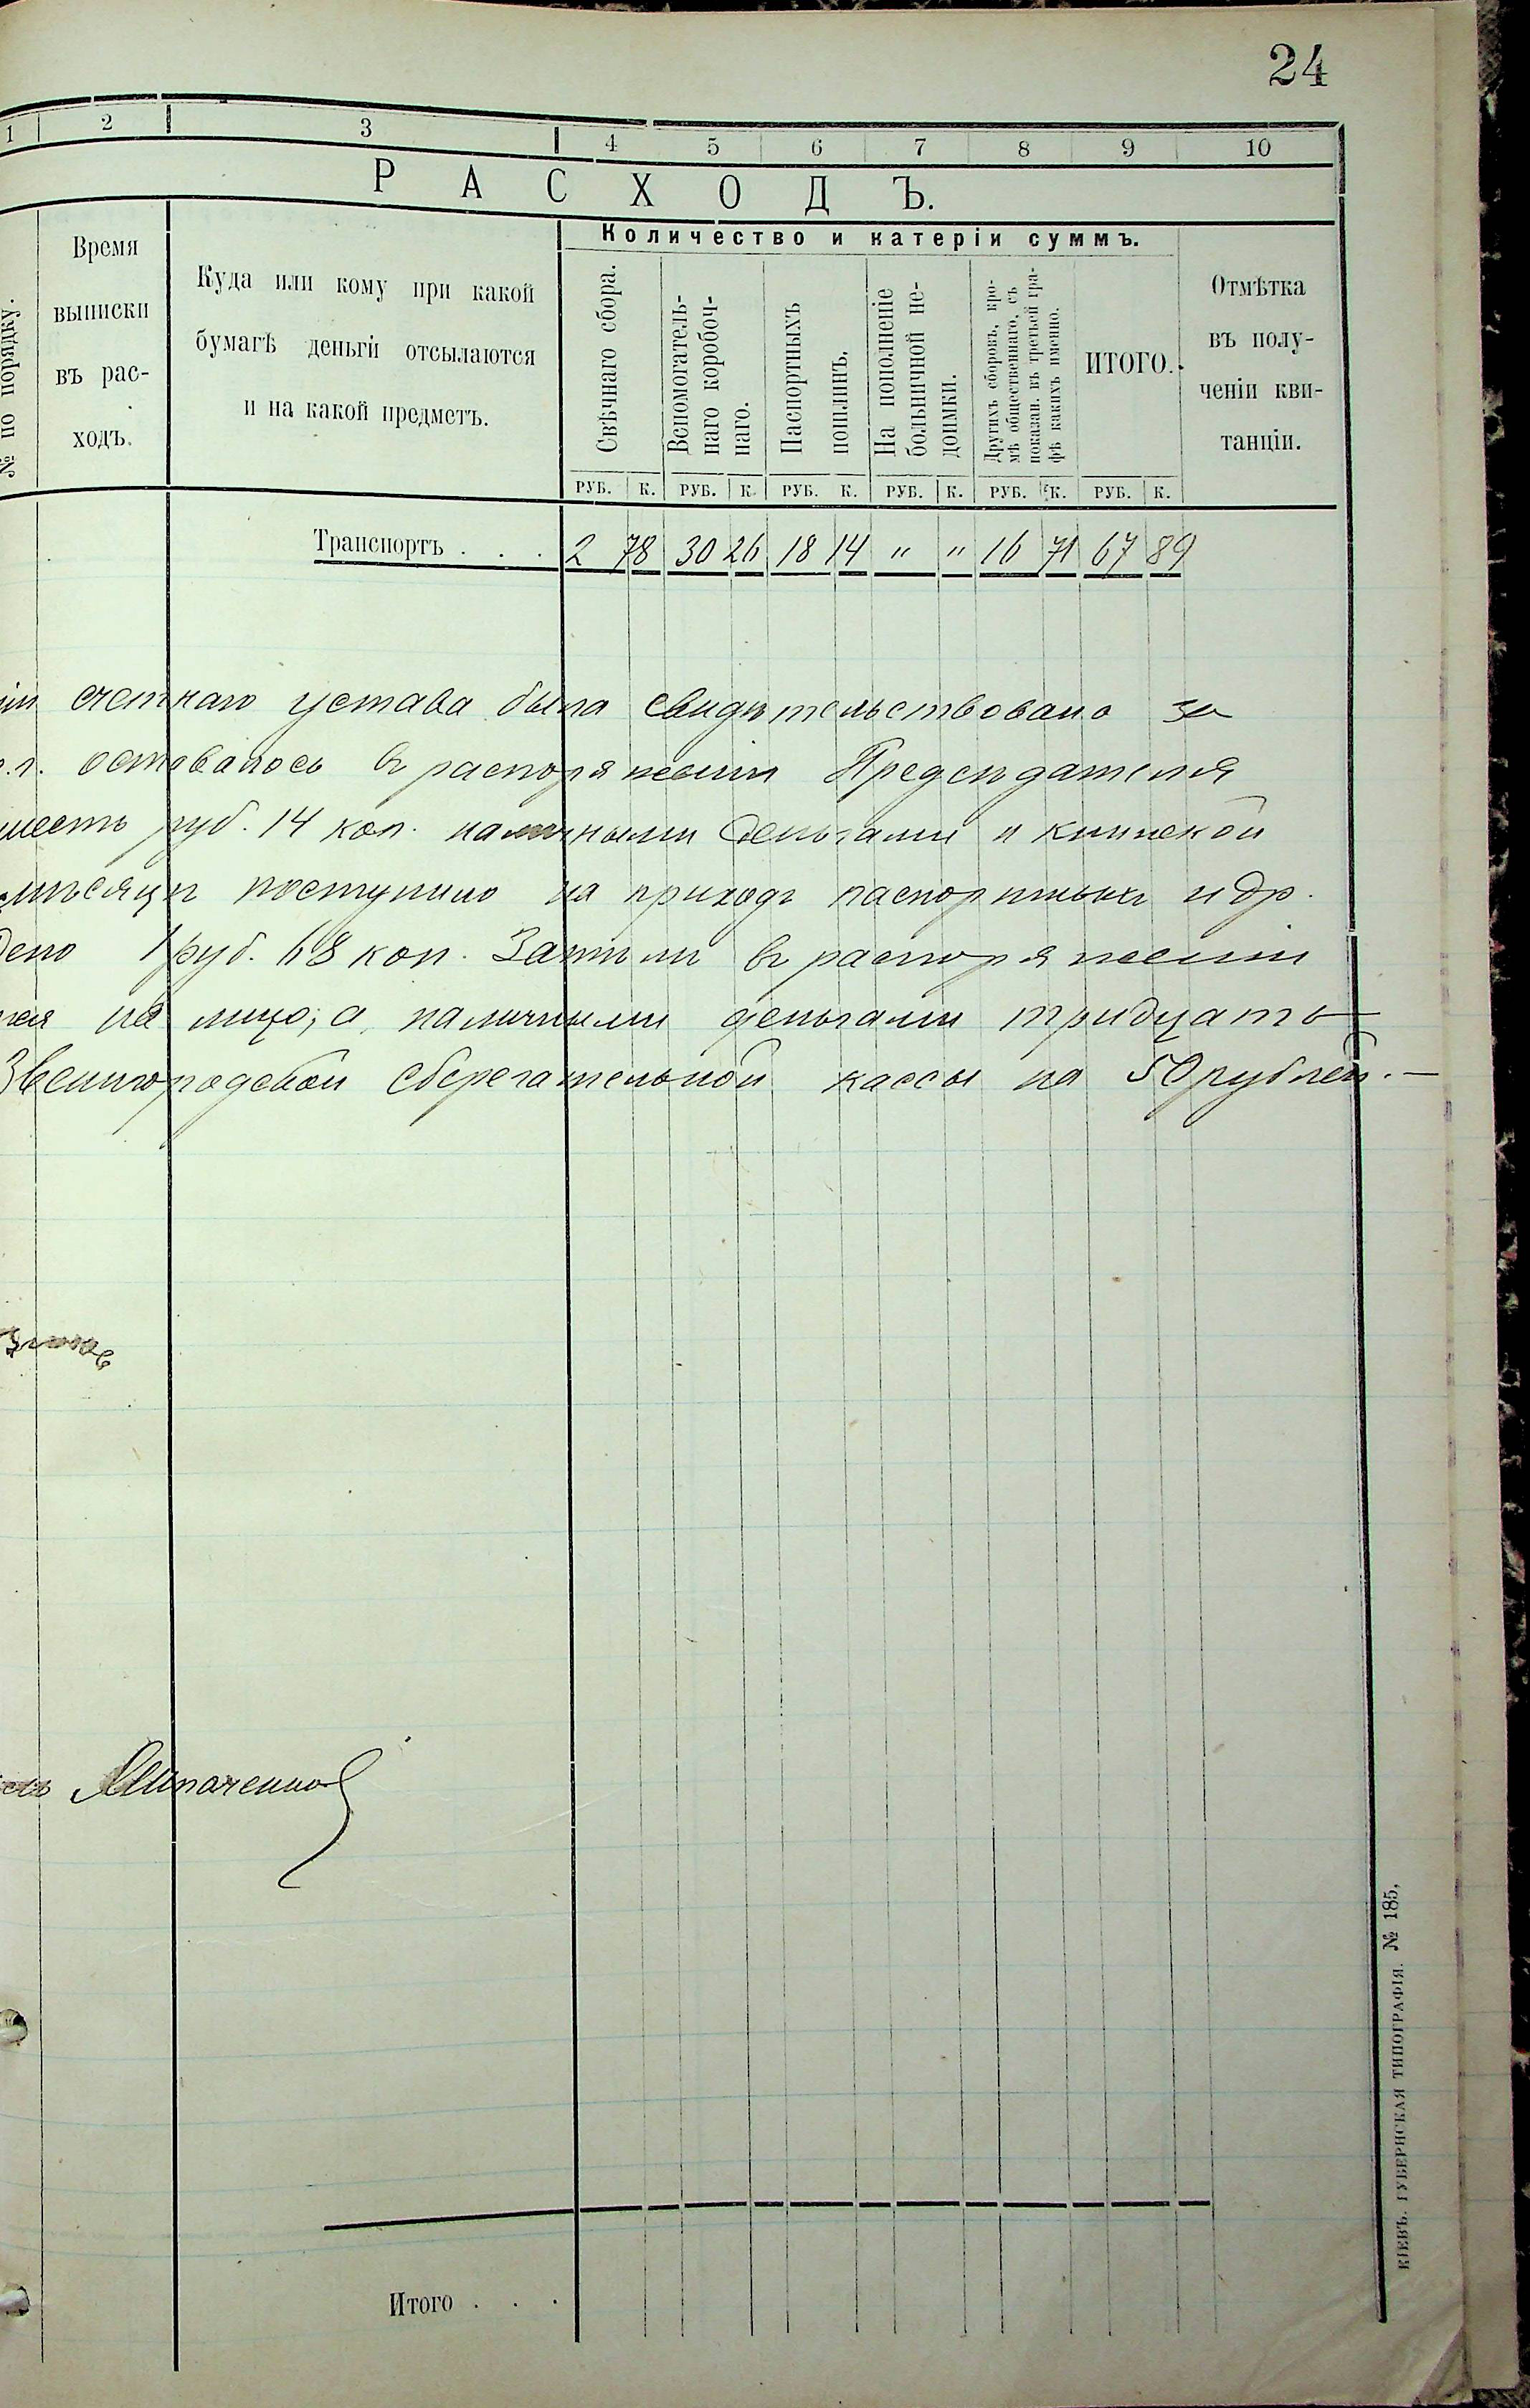 24
1 2 3 4 5 6 7 8 9 10
РАСХОДЪ.
№ по порядку.
Время
выписки
въ рас-
ходъ.
Куда или кому при какой
бумагѣ деньги отсылаются
и на какой предметъ.
Количество и катеріи суммъ.
Свѣчнаго сбора.
Вспомогатель-
наго коробоч-
наго.
Паспортныхъ
пошлинъ.
На пополненіе
больничной не-
доимки.
Другихъ сборовъ, кро-
мѣ общественнаго, съ
показан. въ третьей гра-
фѣ какихъ именно.
ИТОГО.
Отмѣтка
въ полу-
ченіи кви-
танціи.
РУБ. К. РУБ. К. РУБ. К. РУБ. К. РУБ. К. РУБ. К.
Транспортъ . . . 2 78 30 26 18 14 " " 16 71 67 89
счетнаго устава была свидѣтельствована за
оставалось въ распоряженіи Предсѣдателя
шесть руб. 14 коп. наличными деньгами и книжкой
мѣсяцѣ поступило на приходъ паспортныхъ и др.
1 руб. 68 коп. Затѣмъ въ распоряженіи
на лицо, а наличными деньгами тридцать
Звенигородской сберегательной кассы на 50 рублей. —
Итого . . .
КІЕВЪ. ГУБЕРНСКАЯ ТИПОГРАФІЯ. № 185,